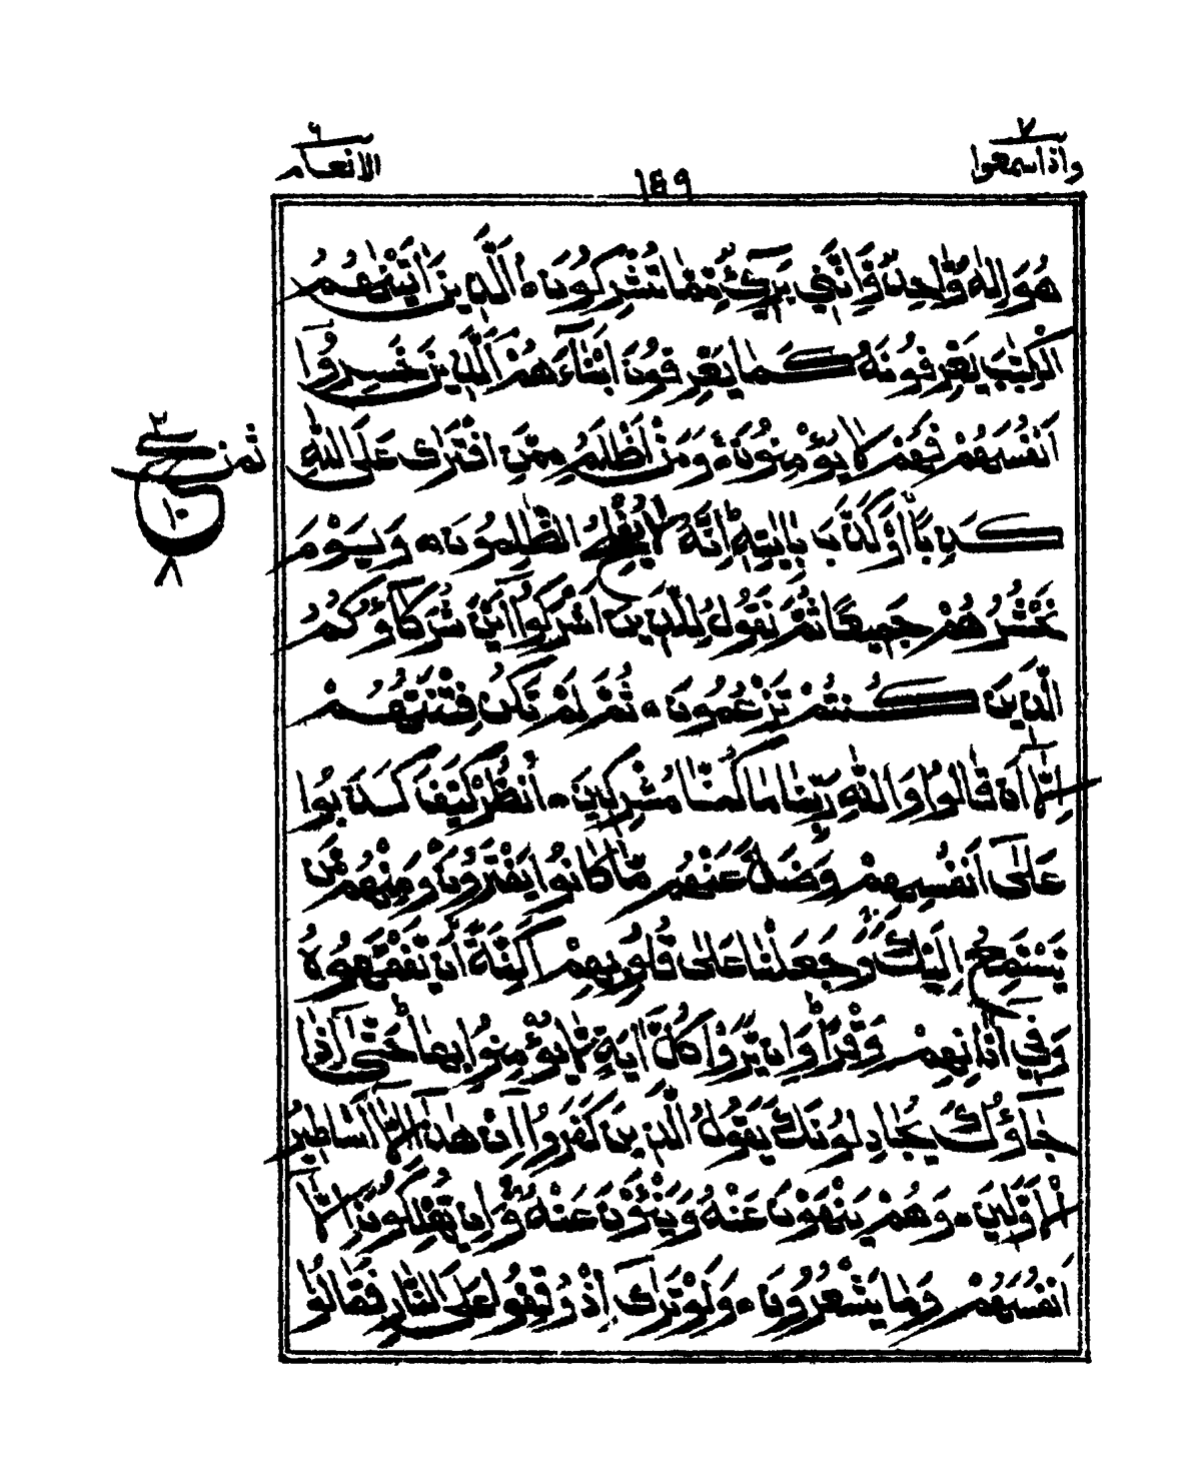 ٧
وَاِذَا سَمِعُوْا
١٤٩
٦
الانعام
هُوَ اِلٰهٌ وَّاحِدٌ وَّاِنَّنِيْ بَرِيْٓءٌ مِّمَّا تُشْرِكُوْنَ ۞ اَلَّذِيْنَ اٰتَيْنٰهُمُ
الْكِتٰبَ يَعْرِفُوْنَهٗ كَمَا يَعْرِفُوْنَ اَبْنَآءَهُمْ اَلَّذِيْنَ خَسِرُوْٓا
اَنْفُسَهُمْ فَهُمْ لَا يُؤْمِنُوْنَ ۞ وَمَنْ اَظْلَمُ مِمَّنِ افْتَرٰى عَلَى اللّٰهِ
كَذِبًا اَوْ كَذَّبَ بِاٰيٰتِهٖ اِنَّهٗ لَا يُفْلِحُ الظّٰلِمُوْنَ ۞ وَيَوْمَ
نَحْشُرُهُمْ جَمِيْعًا ثُمَّ نَقُوْلُ لِلَّذِيْنَ اَشْرَكُوْٓا اَيْنَ شُرَكَآؤُكُمُ
الَّذِيْنَ كُنْتُمْ تَزْعُمُوْنَ ۞ ثُمَّ لَمْ تَكُنْ فِتْنَتُهُمْ
اِلَّآ اَنْ قَالُوْا وَاللّٰهِ رَبِّنَا مَا كُنَّا مُشْرِكِيْنَ ۞ اُنْظُرْ كَيْفَ كَذَبُوْا
عَلٰٓى اَنْفُسِهِمْ وَضَلَّ عَنْهُمْ مَّا كَانُوْا يَفْتَرُوْنَ ۞ وَمِنْهُمْ مَّنْ
يَّسْتَمِعُ اِلَيْكَ وَجَعَلْنَا عَلٰى قُلُوْبِهِمْ اَكِنَّةً اَنْ يَّفْقَهُوْهُ
وَفِيْٓ اٰذَانِهِمْ وَقْرًا وَاِنْ يَّرَوْا كُلَّ اٰيَةٍ لَّا يُؤْمِنُوْا بِهَا حَتّٰٓى اِذَا
جَآءُوْكَ يُجَادِلُوْنَكَ يَقُوْلُ الَّذِيْنَ كَفَرُوْٓا اِنْ هٰذَآ اِلَّآ اَسَاطِيْرُ
الْاَوَّلِيْنَ ۞ وَهُمْ يَنْهَوْنَ عَنْهُ وَيَنْئَوْنَ عَنْهُ وَاِنْ يُّهْلِكُوْنَ اِلَّآ
اَنْفُسَهُمْ وَمَا يَشْعُرُوْنَ ۞ وَلَوْ تَرٰٓى اِذْ وُقِفُوْا عَلَى النَّارِ فَقَالُوْا
ثمن
٢
ع
١٠
٨